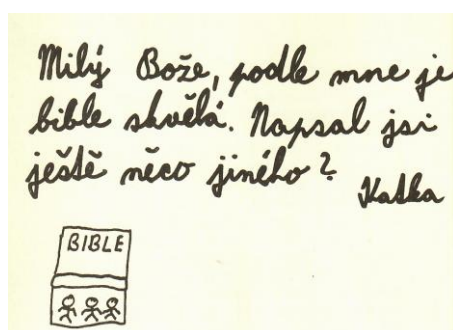 Milý Bože, podle mne je
bible skvělá. Napsal jsi
ještě něco jiného?
Katka
BIBLE